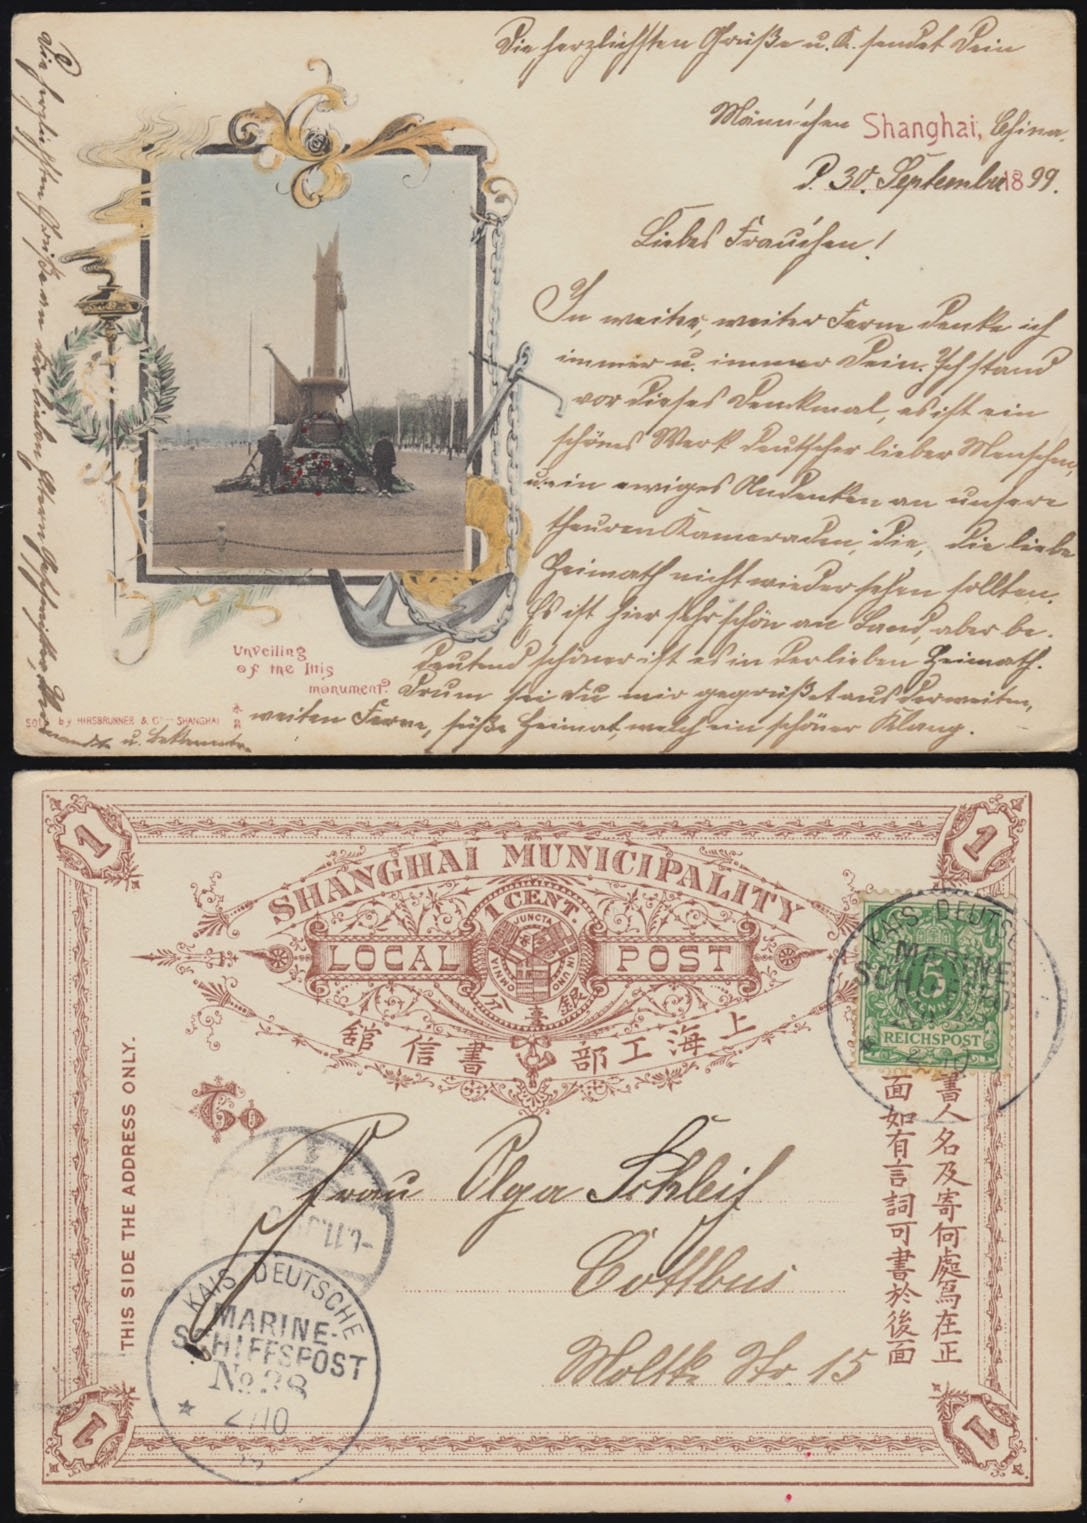 Die herzlichsten Grüße u. K. sendet Dein
Männ'chen
Shanghai, China.
d. 30. September 1899.
Liebes Frauchen!
In weiter, weiter Ferne denke ich
immer u. immer Dein. Ich stand
vor dieses Denkmal, es ist ein
schönes Werk deutscher lieber Menschen,
u. ein ewiges Andenken an unsere
theuren Kameraden, die, die liebe
Heimath nicht wieder sehen sollten.
Es ist hier sehr schön an Land, aber be-
deutend schöner ist es in der lieben Heimath.
Drum sei du mir gegrüßet aus der weiten,
weiten Ferne, süße Heimat, welch ein schöner Klang.
Die herzlichsten Grüße an die lieben Eltern, Geschwister, Ver-
wandte u. Bekannte.
Unveiling
of the Iltis
monument.
SOLD by HIRSBRUNNER & Co. SHANGHAI
1
1
SHANGHAI MUNICIPALITY
1 CENT.
LOCAL POST
OMNIA JUNCTA IN UNO
銀壹分
上海工部書信館
KAIS. DEUTSCHE
MARINE-
SCHIFFSPOST
5
REICHSPOST
書人名及寄何處寫在正
面如有言詞可書於後面
THIS SIDE THE ADDRESS ONLY.
To
Frau Olga Schleif
Cottbus
Moltke Str. 15
KAIS. DEUTSCHE
MARINE-
SCHIFFSPOST
No 28
2/10
1
1